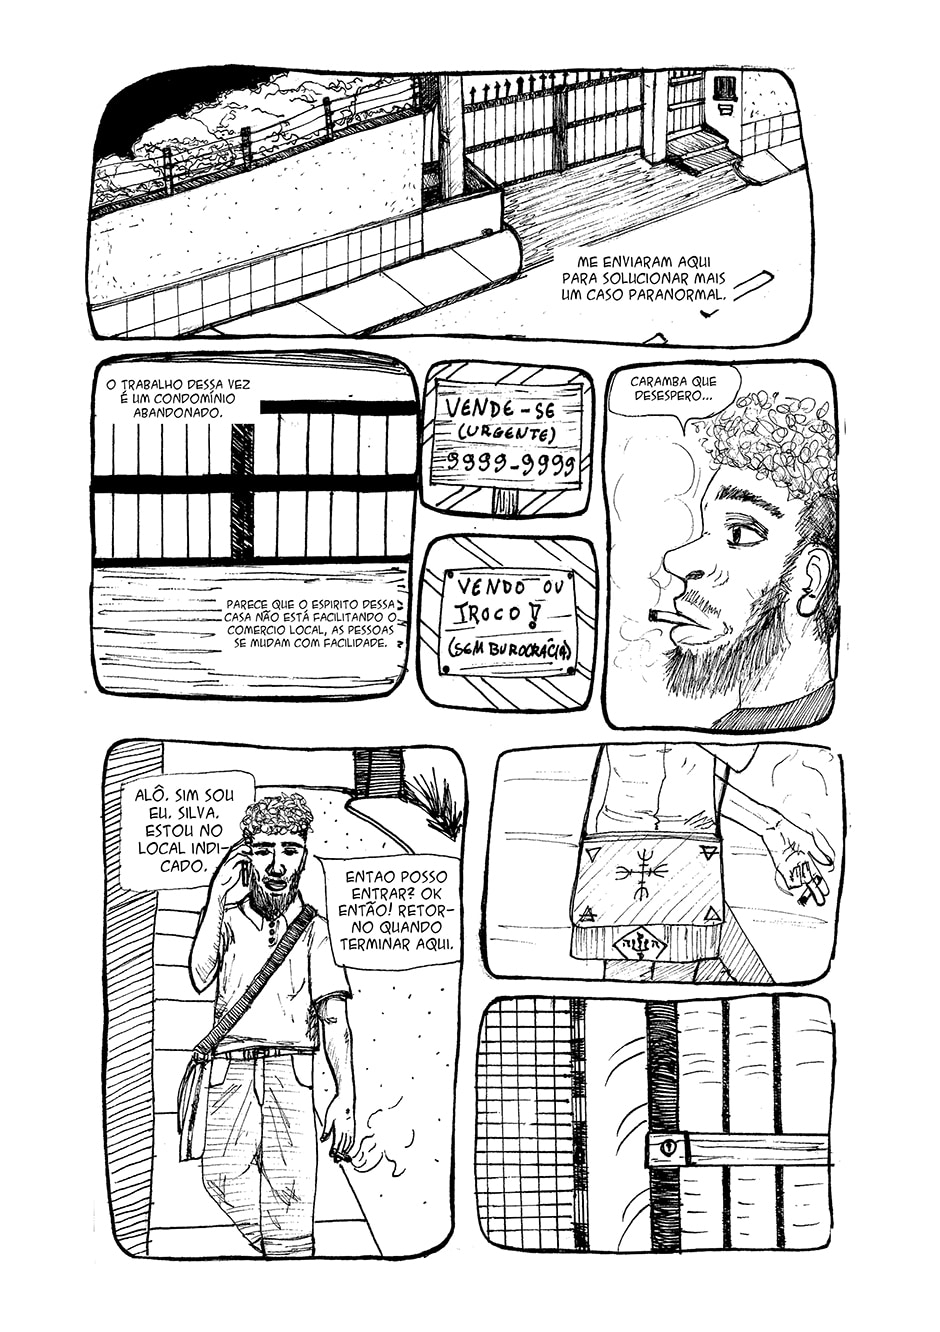 ME ENVIARAM AQUI
PARA SOLUCIONAR MAIS
UM CASO PARANORMAL.
O TRABALHO DESSA VEZ
É UM CONDOMÍNIO
ABANDONADO.
PARECE QUE O ESPIRITO DESSA
CASA NÃO ESTÁ FACILITANDO O
COMERCIO LOCAL, AS PESSOAS
SE MUDAM COM FACILIDADE.
VENDE-SE
(URGENTE)
9999-9999
VENDO OU
TROCO!
(SEM BUROCRÁCIA)
CARAMBA QUE
DESESPERO...
ALÔ. SIM SOU
EU. SILVA.
ESTOU NO
LOCAL INDI-
CADO.
ENTAO POSSO
ENTRAR? OK
ENTÃO! RETOR-
NO QUANDO
TERMINAR AQUI.